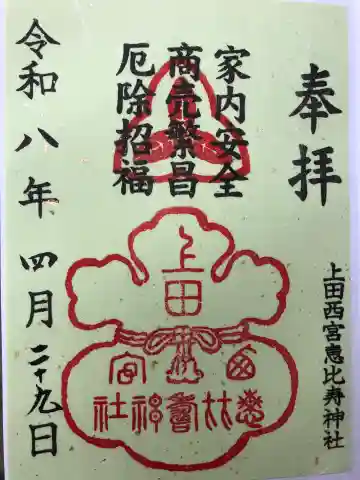 奉拝
上田西宮恵比寿神社
家内安全
商売繁昌
厄除招福
上田
西宮恵比寿神社
令和八年四月二十九日